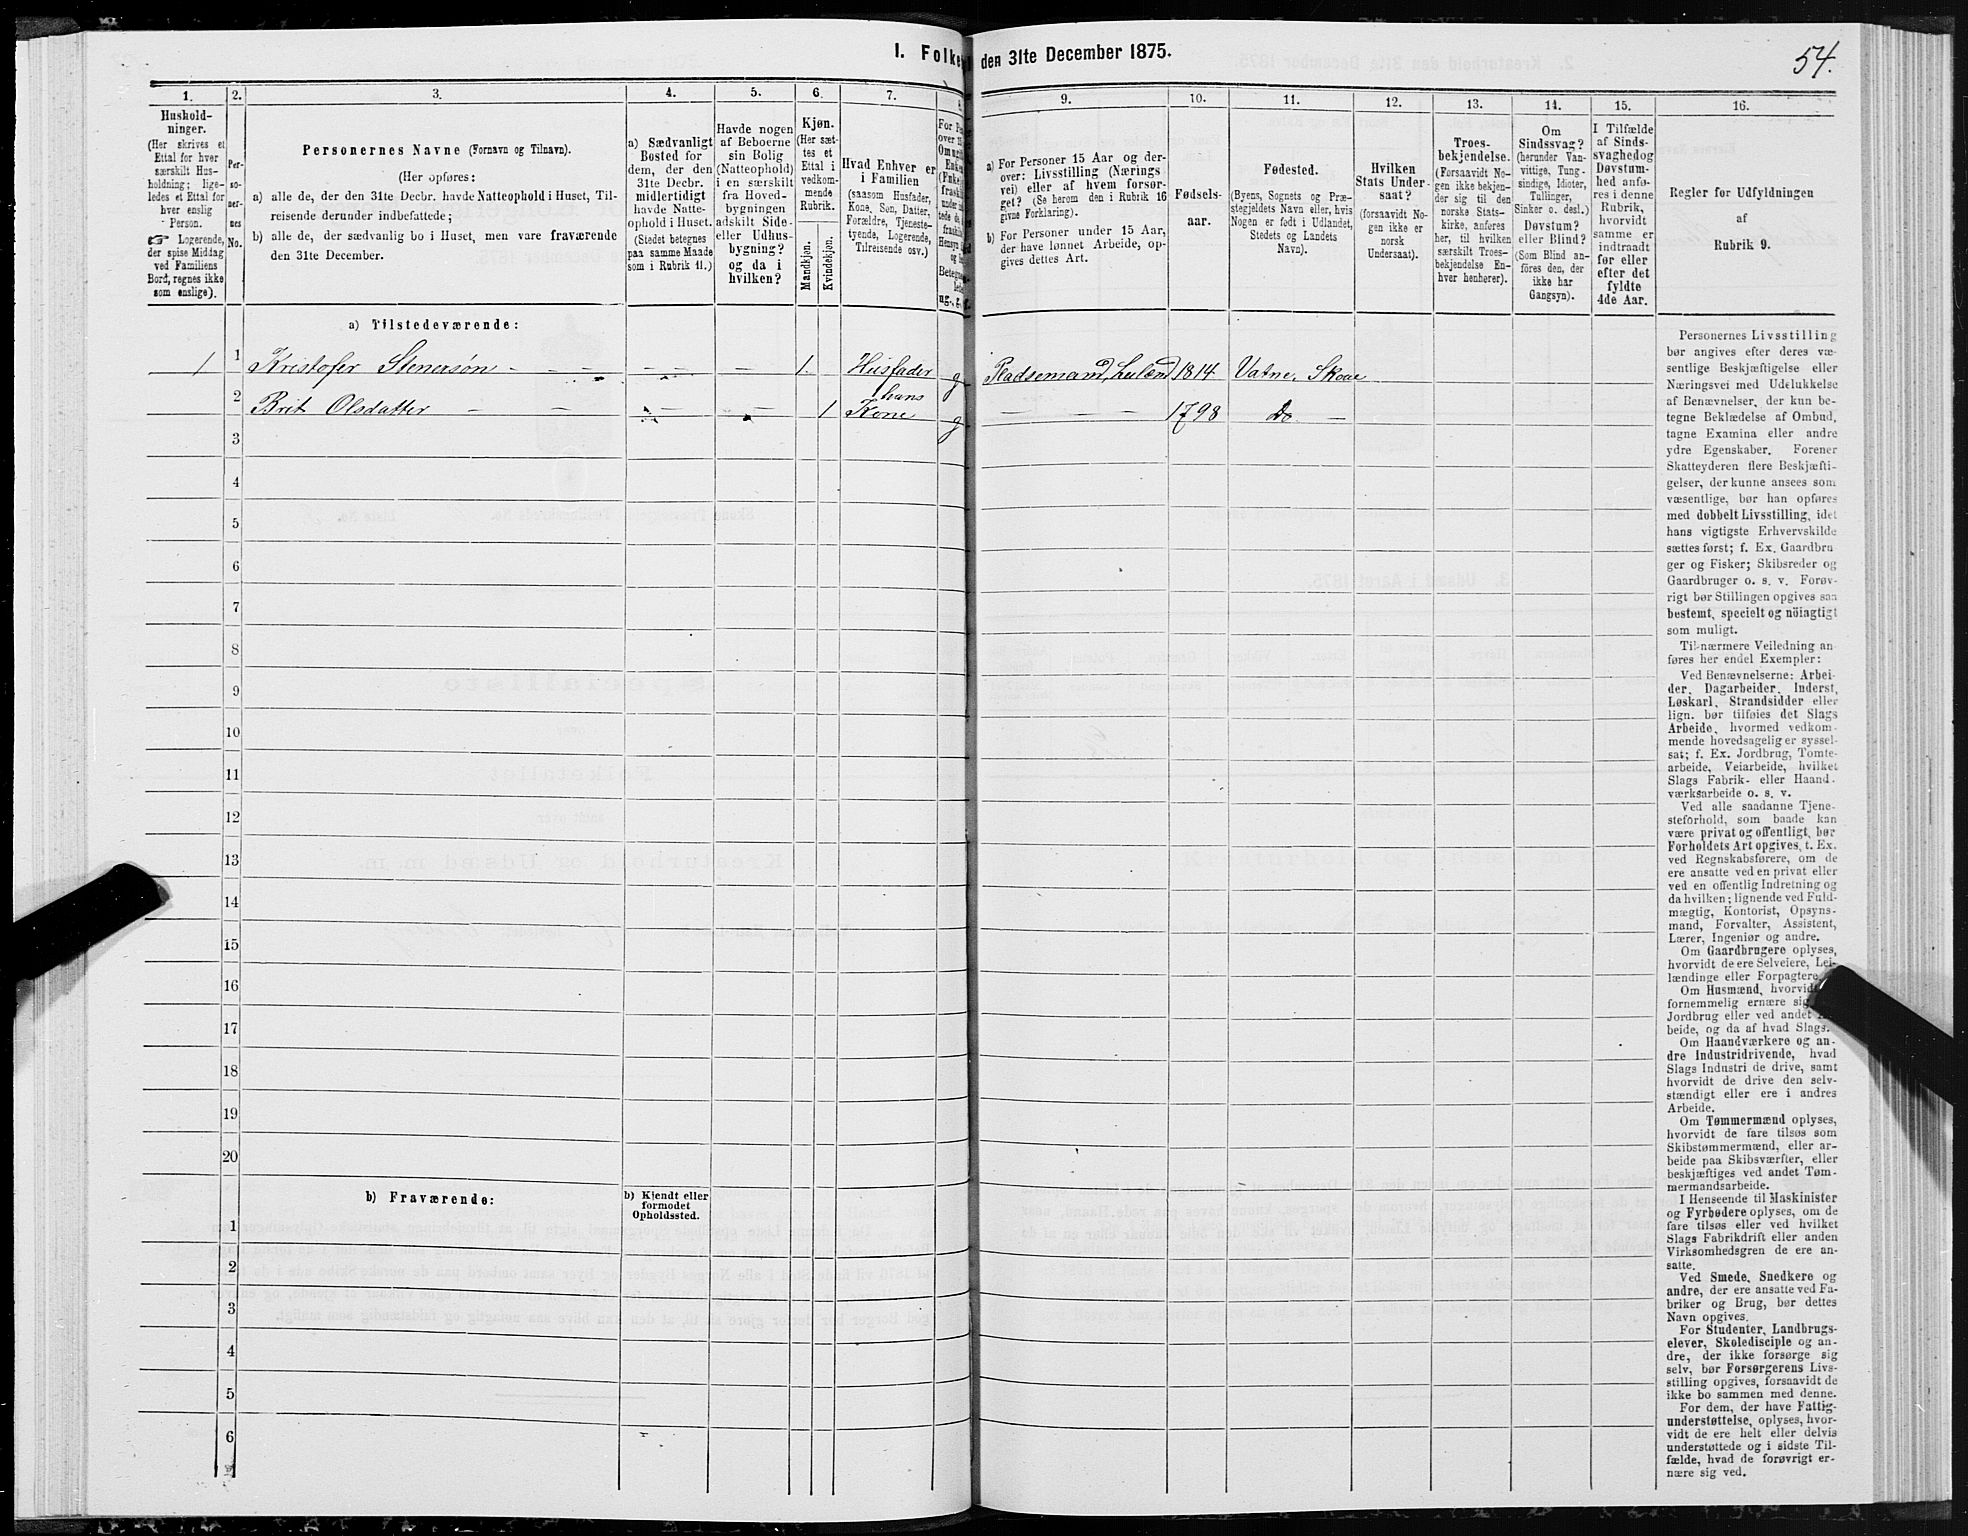 I. Folke
den 31te December 1875.
54.
1.
Hushold-
ninger.
(Her skrives et
Ettal for hver
særskilt Hus-
holdning; lige-
ledes et Ettal for
hver enslig
Person.
Logerende,
der spise Middag
ved Familiens
Bord, regnes ikke
som enslige).
2.
Per-
so-
ner-
nes
No.
3.
Personernes Navne (Fornavn og Tilnavn).
(Her opføres:
a) alle de, der den 31te Decbr. havde Natteophold i Huset, Til-
reisende derunder indbefattede;
b) alle de, der sædvanlig bo i Huset, men vare fraværende
den 31te December.
4.
a) Sædvanligt
Bosted for
dem, der den
31te Decbr.
midlertidigt
havde Natte-
ophold i Huset.
(Stedet betegnes
paa samme Maade
som i Rubrik 11.)
5.
Havde nogen
af Beboerne
sin Bolig
(Natteophold)
i en særskilt
fra Hoved-
bygningen
adskilt Side-
eller Udhus-
bygning?
og da i
hvilken?
6.
Kjøn.
(Her sæt-
tes et
Ettal i
vedkom-
mende
Rubrik.
Mandkjøn.
Kvindekjøn.
7.
Hvad Enhver er
i Familien
(saasom Husfader,
Kone, Søn, Datter,
Forældre, Tjeneste-
tyende, Logerende,
Tilreisende osv.)
9.
a) For Personer 15 Aar og der-
over: Livsstilling (Nærings
vei) eller af hvem forsør-
get? (Se herom den i Rubrik 16
givne Forklaring).
b) For Personer under 15 Aar,
der have lønnet Arbeide, op-
gives dettes Art.
10.
Fødsels-
aar.
11.
Fødested.
(Byens, Sognets og Præ-
stegjeldets Navn eller, hvis
Nogen er født i Udlandet,
Stedets og Landets
Navn).
12.
Hvilken
Stats Under-
saat?
(forsaavidt No-
gen ikke er
norsk
Undersaat).
13.
Troes-
bekjendelse.
(Forsaavidt No-
gen ikke bekjen-
der sig til den
norske Stats-
kirke, anføres
her, til hvilken
særskilt Troes-
bekjendelse En-
hver henhører).
14.
Om
Sindssvag?
(herunder Van-
vittige, Tung-
sindige, Idioter,
Tullinger,
Sinker o. desl.)
Døvstum?
eller Blind?
(Som Blind an-
føres den, der
ikke har
Gangsyn).
15.
I Tilfælde
af Sinds-
svaghed og
Døvstum-
hed anfø-
res i denne
Rubrik,
hvorvidt
samme er
indtraadt
før eller
efter det
fyldte
4de Aar.
16.
Regler for Udfyldningen
af
Rubrik 9.
a) Tilstedeværende:
1 1 Kristofer Stenersøn - - - - - - 1 Husfader g Pladsemand, 1814 Vatne, Skoue
2 Brit Olsdatter - - - - 1 hans Kone g - - - 1798 Do -
3
4
5
6
7
8
9
10
11
12
13
14
15
16
17
18
19
20
b) Fraværende:
b) Kjendt eller
formodet
Opholdssted.
1
2
3
4
5
6
Personernes Livsstilling
bør angives efter deres væ-
sentlige Beskjæftigelse eller
Næringsvei med Udelukkelse
af Benævnelser, der kun be-
tegne Beklædelse af Ombud,
tagne Examina eller andre
ydre Egenskaber. Forener
Skatteyderen flere Beskjæfti-
gelser, der kunne ansees som
væsentlige, bør han opføres
med dobbelt Livsstilling, idet
hans vigtigste Erhvervskilde
sættes først; f. Ex. Gaardbru
ger og Fisker; Skibsreder og
Gaardbruger o. s. v. Forøv-
rigt bør Stillingen opgives saa
bestemt, specielt og nöiagtigt
som muligt.
Til nærmere Veiledning an-
føres her endel Exempler:
Ved Benævnelserne: Arbei-
der, Dagarbeider, Inderst,
Løskarl, Strandsidder eller
lign. bør tilføies det Slags
Arbeide, hvormed vedkom-
mende hovedsagelig er syssel-
sat; f. Ex. Jordbrug, Tomte-
arbeide, Veiarbeide, hvilket
Slags Fabrik- eller Haand-
værksarbeide o. s. v.
Ved alle saadanne Tjene-
steforhold, som baade kan
være privat og offentligt, bør
Forholdets Art opgives, t. Ex.
ved Regnskabsførere, om de
ere ansatte ved en privat eller
ved en offentlig Indretning og
da hvilken; lignende ved Fuld-
mægtig, Kontorist, Opsyns-
mand, Forvalter, Assistent,
Lærer, Ingeniør og andre.
Om Gaardbrugere oplyses,
hvorvidt de ere Selveiere, Lei-
lændinge eller Forpagtere.
Om Husmænd, hvorvidt
fornemmelig ernære sig
Jordbrug eller ved andet
beide, og da af hvad Slags.
Om Haandværkere og an-
dre Industridrivende, hvad
Slags Industri de drive, samt
hvorvidt de drive den selv-
stændigt eller ere i andres
Arbeide.
Om Tømmermænd oplyses,
hvorvidt de fare tilsøs som
Skibstømmermænd, eller ar-
beide paa Skibsværfter, eller
beskjæftiges ved andet Tøm-
mermandsarbeide.
I Henseende til Maskinister
og Fyrbødere oplyses, om de
fare tilsøs eller ved hvilket
Slags Fabrikdrift eller anden
Virksomhedsgren de ere an-
satte.
Ved Smede, Snedkere og
andre, der ere ansatte ved Fa-
briker og Brug, bør dettes
Navn opgives.
For Studenter, Landbrugs-
elever, Skoledisciple og an-
dre, der ikke forsørge sig
selv, bør Forsørgerens Livs-
stilling opgives, forsaavidt de
ikke bo sammen med denne.
For dem, der have Fattig-
understøttelse, oplyses, hvor-
vidt de ere helt eller delvis
understøttede og i sidste Til-
fælde, hvad de forøvrigt er-
nære sig ved.